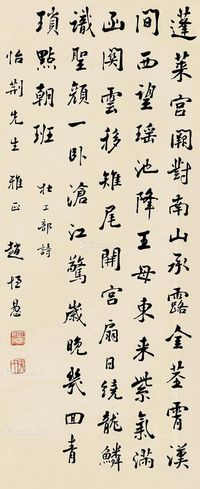 蓬莱宫闕對南山承露金莖霄漢
間西望瑶池降王母東来紫氣滿
函関雲移雉尾開宫扇日繞龍鱗
識聖顔一卧滄江驚歲晚幾回青
瑣點朝班 杜工部詩
怡荆先生 雅正 趙恒惖